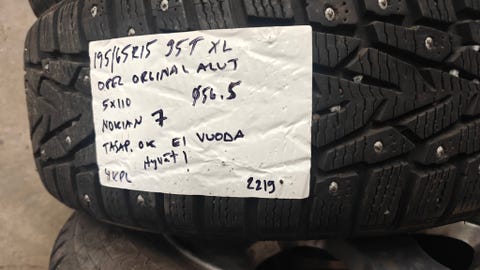 195/65R15 95T XL
OPEL ORGINAL ALUT
5X110 Ø56.5
NOKIAN 7
TASAP. OK EI VUODA
Hyvät!
4KPL
2219